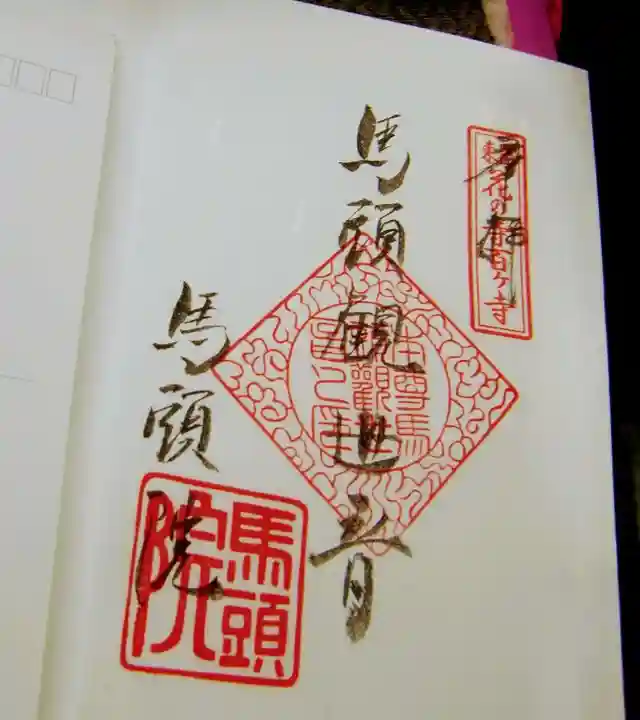 奉拝
東海花の寺百ヶ寺
馬頭観世音
本尊馬
頭観
馬頭院
馬頭
院